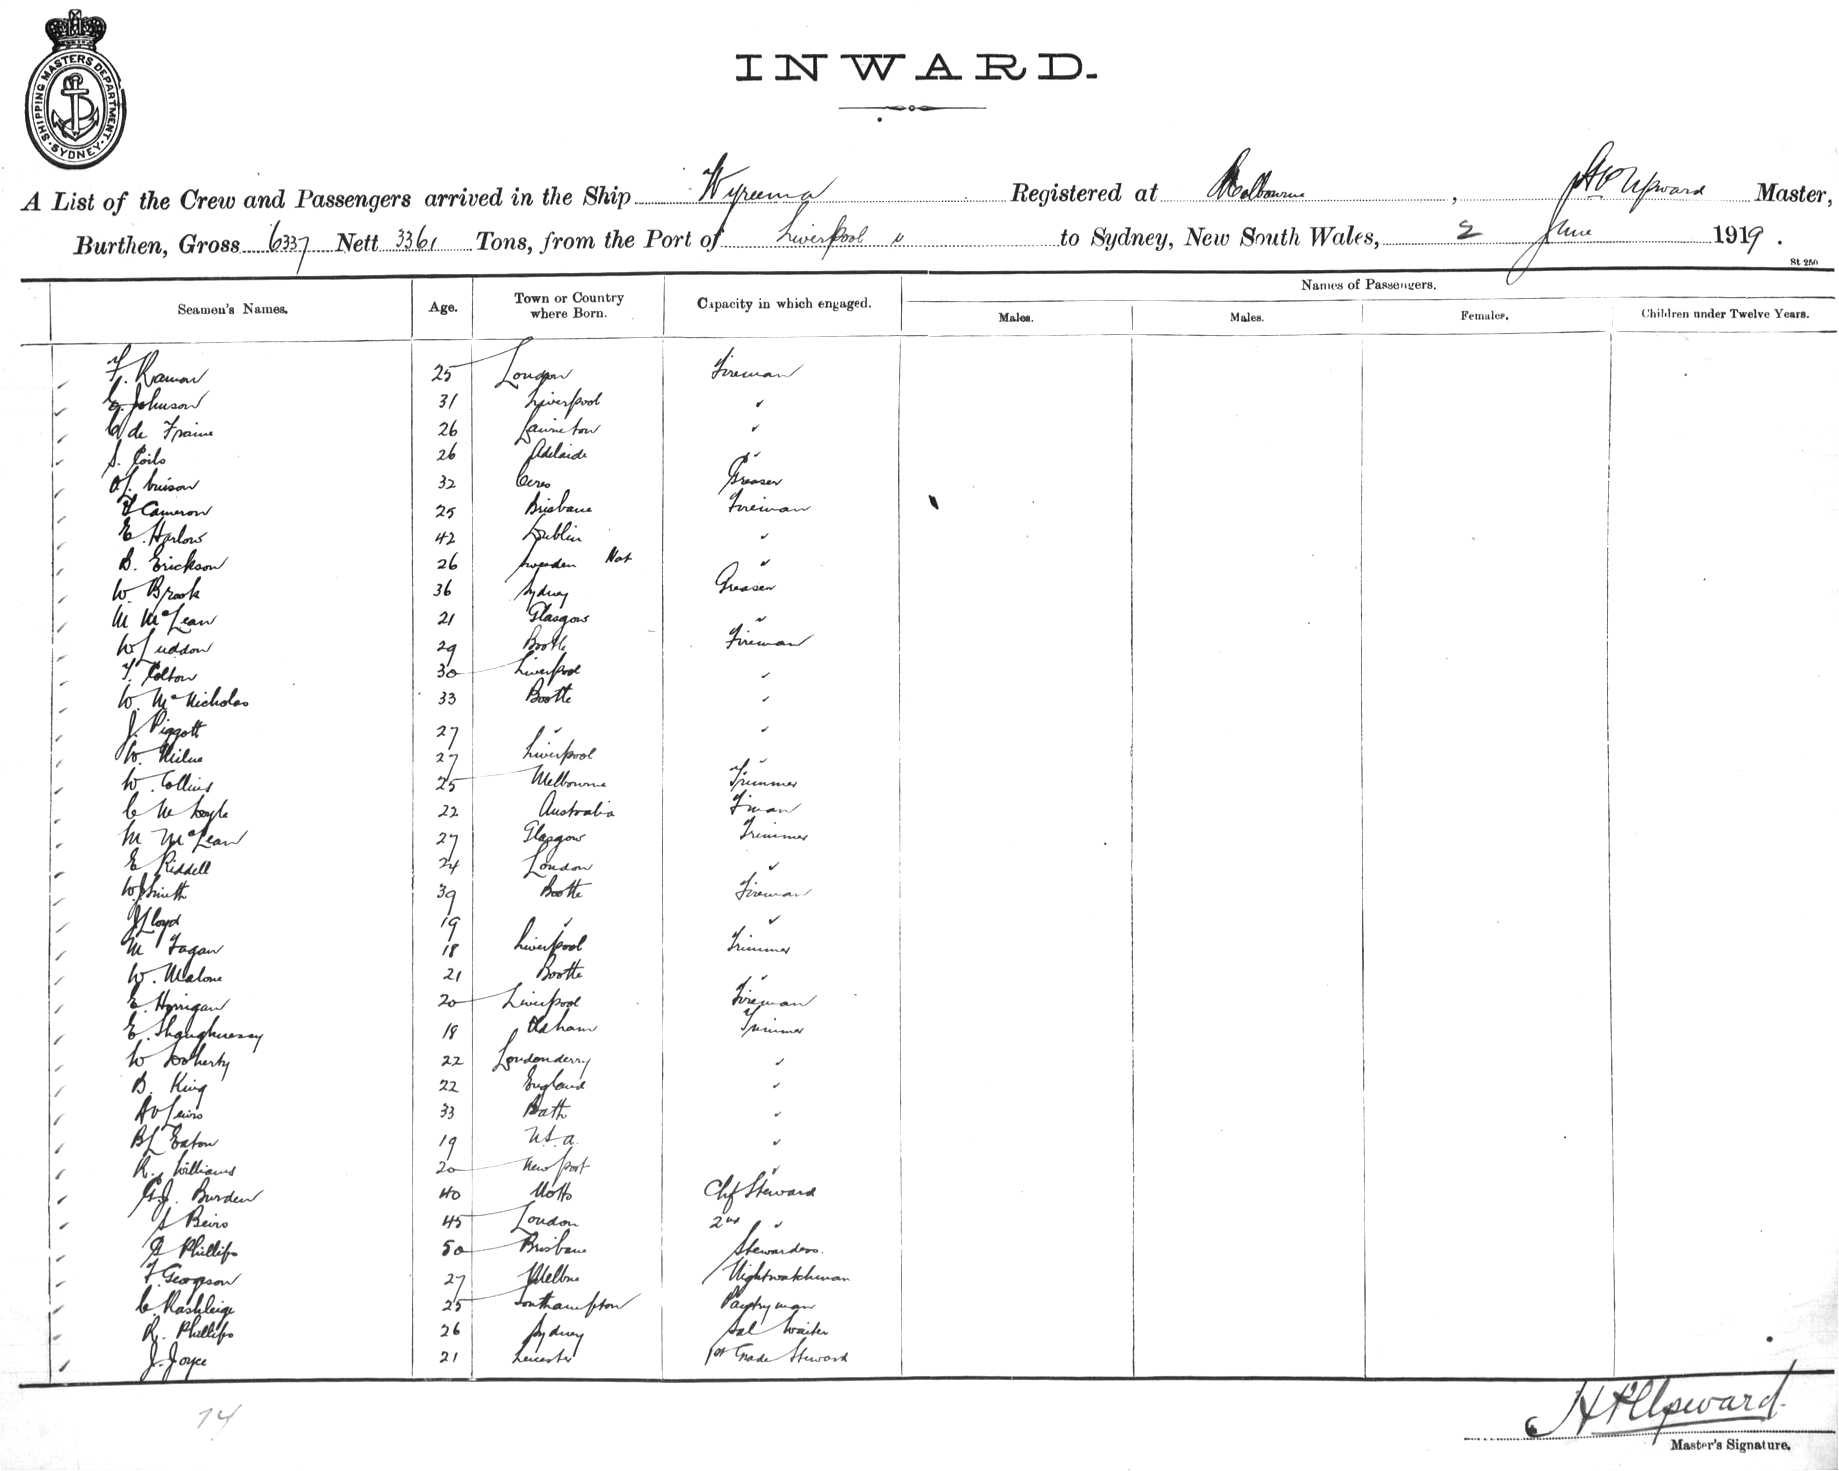 SHIPPING MASTERS DEPARTMENT · SYDNEY ·
INWARD.
A List of the Crew and Passengers arrived in the Ship Wyreema Registered at Melbourne, Upward Master,
Burthen, Gross 6337 Nett 3361 Tons, from the Port of Liverpool to Sydney, New South Wales, 2 June 1919.
St 250
Names of Passengers.
Seamen's Names. Age. Town or Country where Born. Capacity in which engaged. Males. Males. Females. Children under Twelve Years.
F. Ramon 25 London Fireman
E. Johnson 31 Liverpool "
de Fraine 26 "
S. 26 Adelaide "
32 Ceres Greaser
F Cameron 25 Brisbane Fireman
E. Harlow 42 Dublin "
B. Erickson 26 Sweden Nat "
W. Brook 36 Sydney Greaser
M McLean 21 Glasgow "
W Luddon 29 Bootle Fireman
T. Colton 30 Liverpool "
W. McNicholas 33 Bootle "
J. Piggott 27 " "
W. Milne 27 Liverpool "
W. Collins 25 Melbourne Trimmer
22 Australia Fman
M McLean 27 Glasgow Trimmer
E Riddell 24 London "
W J Smith 39 Bootle Fireman
J Lloyd 19 " "
M Fagan 18 Liverpool Trimmer
W. Malone 21 Bootle "
E. Horrigan 20 Liverpool Fireman
E. Shaughnessy 18 Oldham Trimmer
W Doherty 22 Londonderry "
B. King 22 England "
A V Lewis 33 Bath "
B L Eaton 19 U.S.a. "
R. Williams 20 Newport "
G J. Burden 40 Notts Chf Steward
S Beirs 45 London 2nd "
Phillips 50 Brisbane Stewardess.
F. Georgeson 27 Melbne Nightwatchman
C. Rashleigh 25 Southampton Pantryman
R. Phillips 26 Sydney Sal Waiter
J. Joyce 21 Leicester 1st Grade Steward
74
Upward.
Master's Signature.